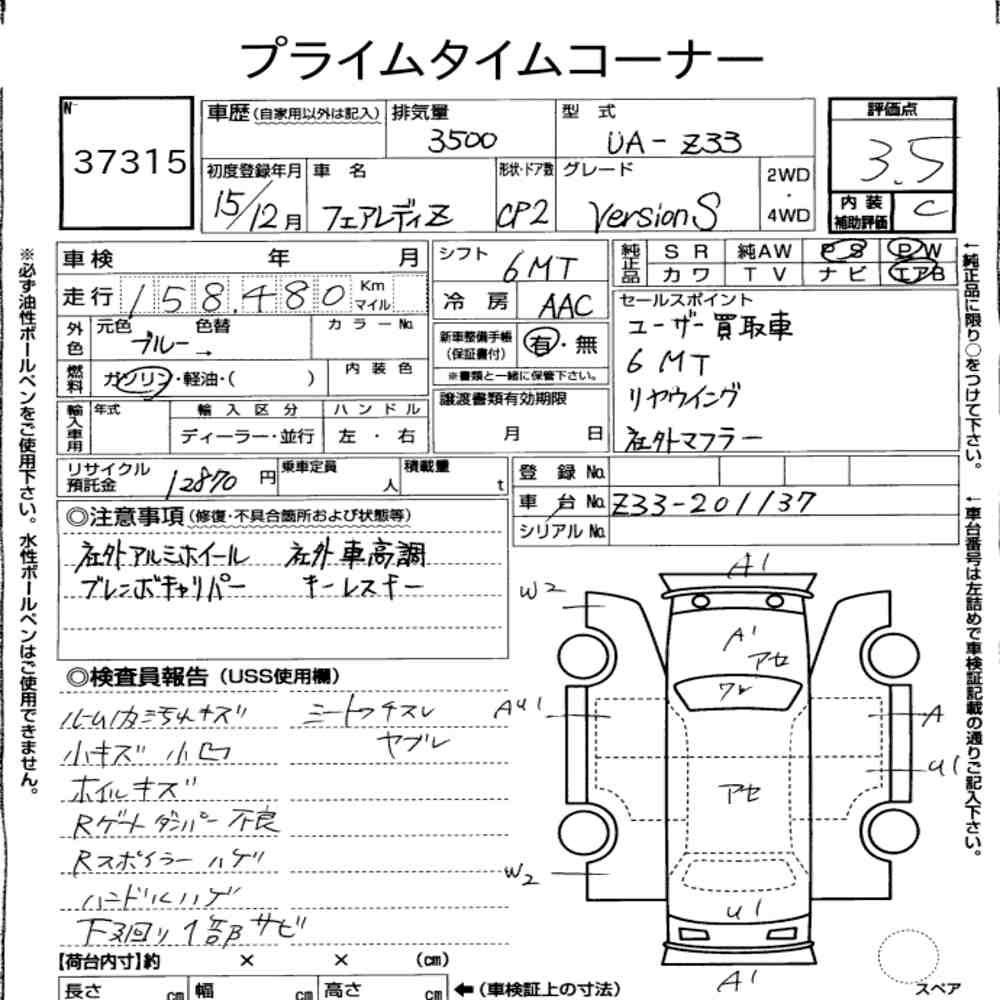 プライムタイムコーナー
№ 37315
車歴(自家用以外は記入) 排気量 3500 型式 UA-Z33 評価点 3.5
初度登録年月 15/12月 車名 フェアレディZ 形状・ドア数 CP2 グレード VersionS 2WD・4WD 内装補助評価 C
車検 年 月 シフト 6MT 純正品 SR 純AW PS PW
カワ TV ナビ エアB
走行 158,480 Km マイル 冷房 AAC
セールスポイント
外色 元色 ブルー 色替 → カラーNo. 新車整備手帳(保証書付) 有・無
ユーザー買取車
燃料 ガソリン・軽油・( ) 内装色 ※書類と一緒に保管下さい。
6MT
輸入車用 年式 輸入区分 ハンドル 譲渡書類有効期限
リヤウイング
ディーラー・並行 左・右 月 日
社外マフラー
リサイクル預託金 12870円 乗車定員 人 積載量 t 登録No.
車台No. Z33-201137
シリアルNo.
◎注意事項(修復・不具合箇所および状態等)
社外アルミホイール 社外車高調
ブレンボキャリパー キーレスキー
◎検査員報告(USS使用欄)
ルーム内汚れキズ シートコゲスレ
小キズ 小凹 ヤブレ
ホイルキズ
Rゲートダンパー不良
Rスポイラーハゲ
ハンドルハゲ
下廻り1部サビ
【荷台内寸】約 × × (cm)
長さ cm 幅 cm 高さ cm ←(車検証上の寸法)
A1
W2
A1
アセ
ワレ
AU1
A
アセ
U1
W2
U1
A1
スペア
※必ず油性ボールペンをご使用下さい。水性ボールペンはご使用できません。
←純正品に限り○をつけて下さい。
←車台番号は左詰めで車検証記載の通りご記入下さい。